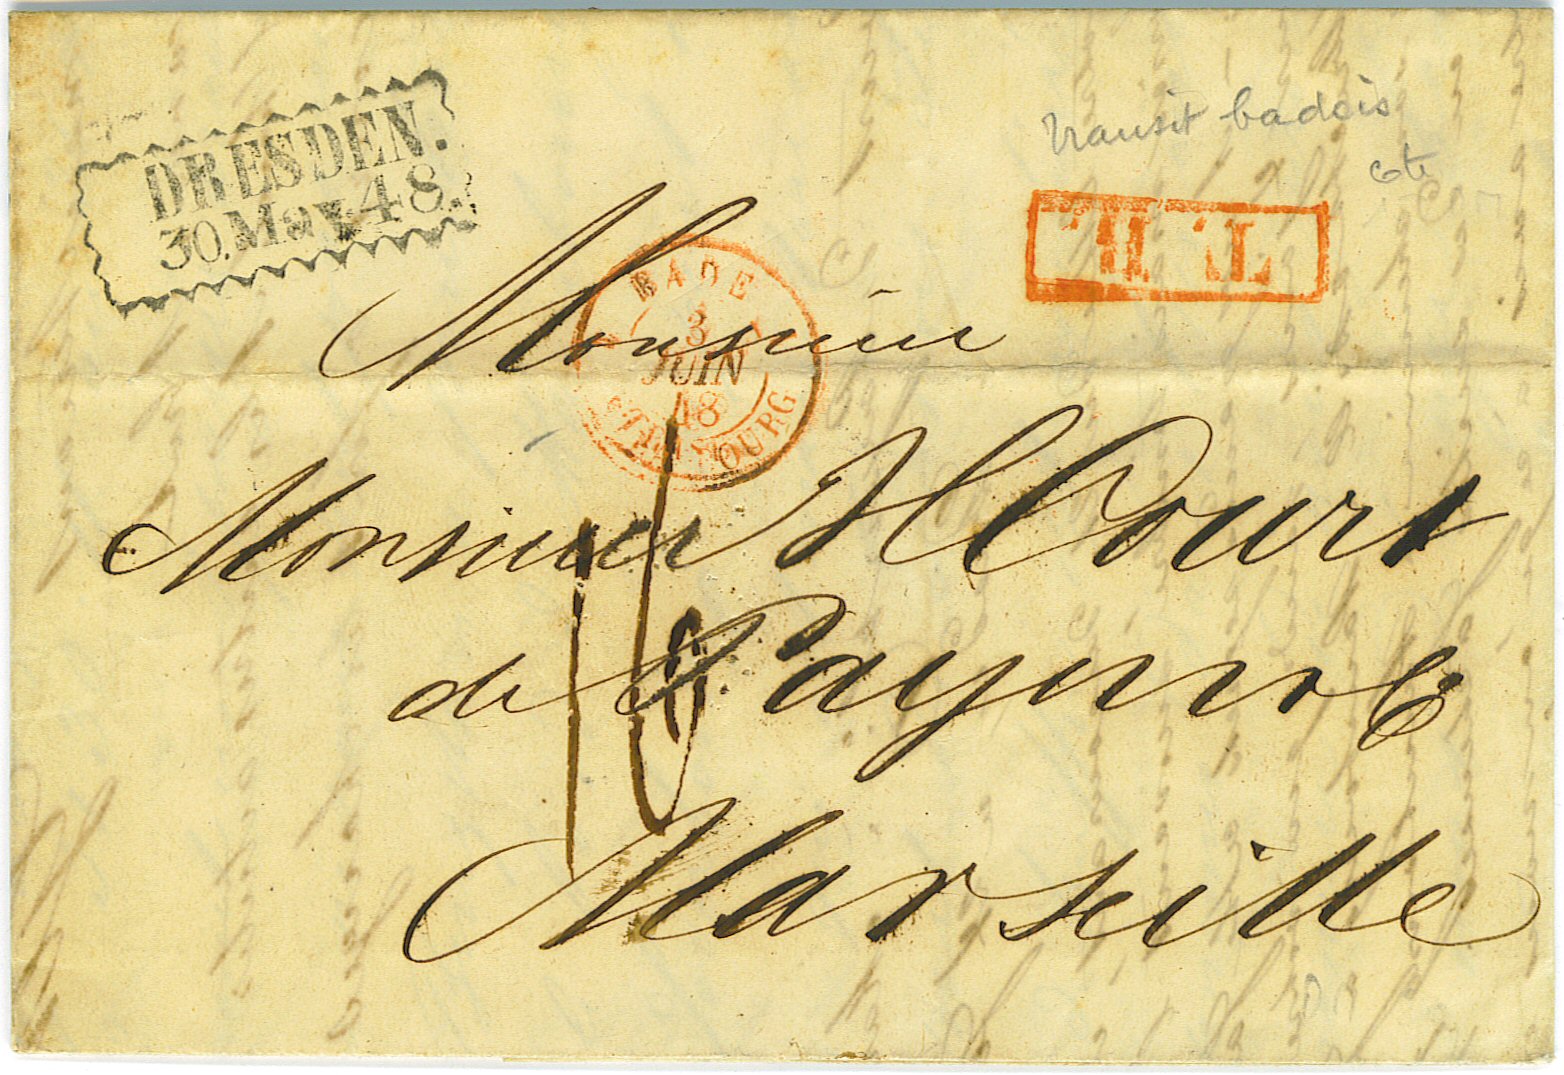 DRESDEN.
30. May 48.
transit badois
cte
T. H.
BADE
3
JUIN
48
STRASBOURG
Monsieur
Monsieur H Court
de Payerne
Marseille
16